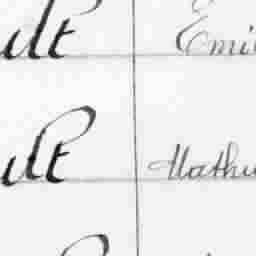 ult Emi
ult Mathu